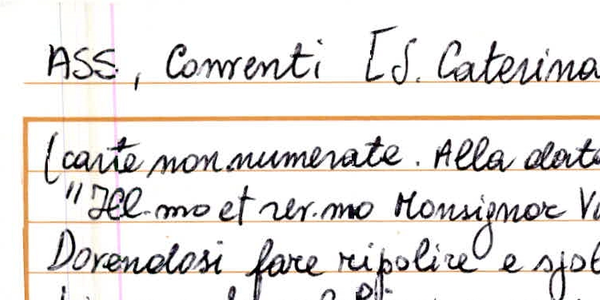 ASS., Conventi [S. Caterina
(carte non numerate. Alla data
"Ill.mo et rev.mo Monsignor V
Dovendosi fare ripolire e